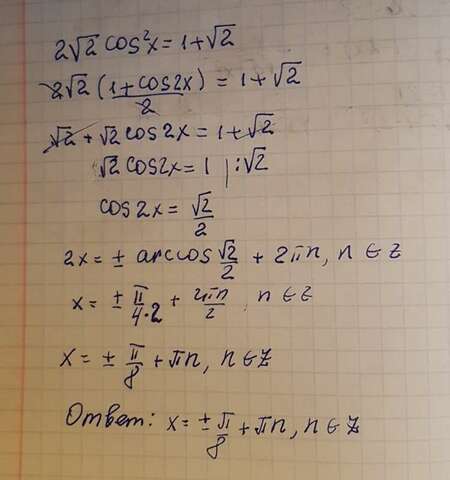 2√2 cos²x = 1+√2
2√2 (1+cos2x)/2 = 1+√2
√2 + √2 cos2x = 1+√2
√2 cos2x = 1 | :√2
cos2x = √2/2
2x = ± arccos √2/2 + 2πn, n ∈ Z
x = ± π/4·2 + 2πn/2, n ∈ Z
x = ± π/8 + πn, n ∈ Z
Ответ: x = ± π/8 + πn, n ∈ Z